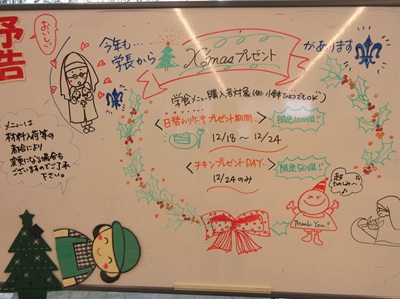 予告
おいしい
今年も…
学長から
X'masプレゼント
があります
学食メニュー購入者対象(但し小鉢でもOK)
<日替わりケーキプレゼント期間>
限定100個!
12/18 〜 12/24
<チキンプレゼントDAY>
限定50個!
12/24のみ
メニューは
材料入荷等の
都合により
変更になる場合も
ございますのでご了承
下さい。
Thank You!